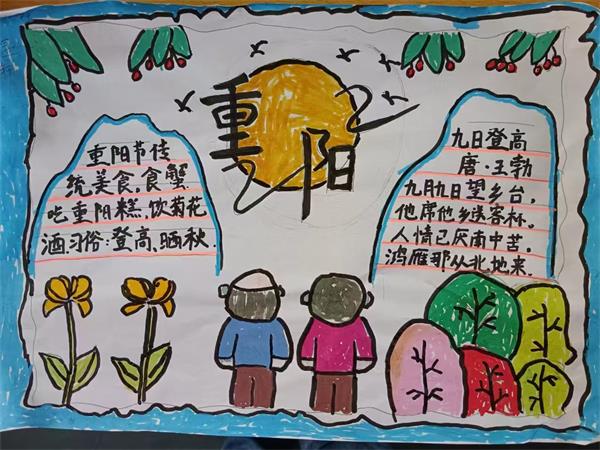 重阳
重阳节传
统美食,食蟹
吃重阳糕,饮菊花
酒习俗:登高,晒秋.
九日登高
唐·王勃
九月九日望乡台,
他席他乡送客杯。
人情已厌南中苦。
鸿雁那从北地来.